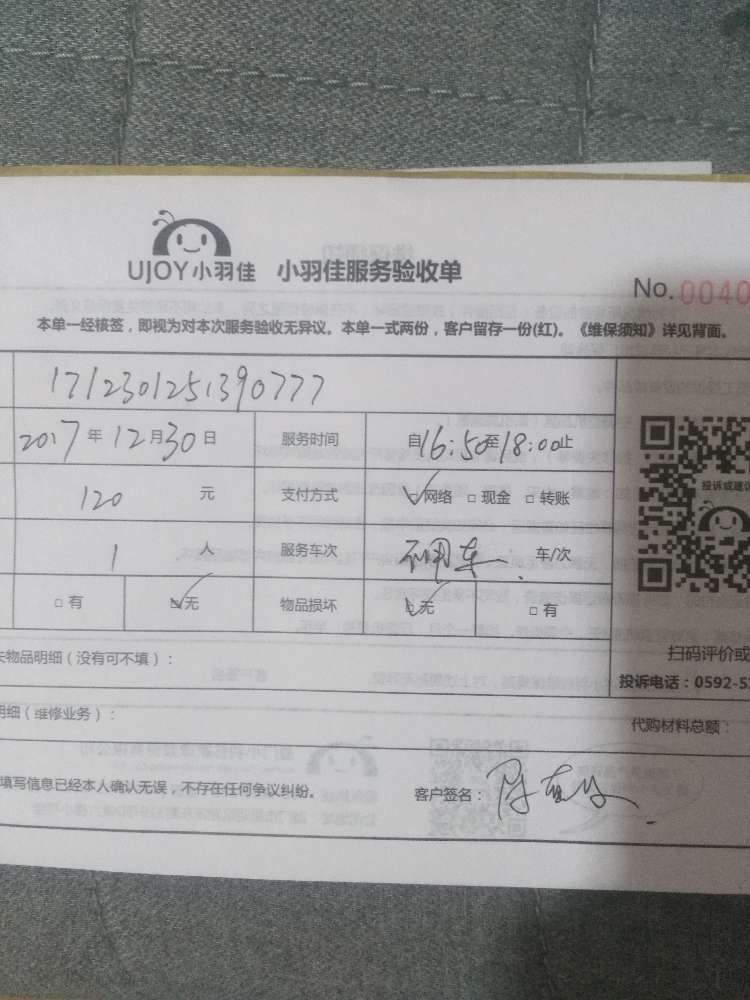 UJOY小羽佳 小羽佳服务验收单
No. 0040
本单一经核签，即视为对本次服务验收无异议。本单一式两份，客户留存一份(红)。《维保须知》详见背面。
171230125139077​7
2017年12月30日 服务时间 自16:50至18:00止
120 元 支付方式 网络 □现金 □转账
投诉或建议
1 人 服务车次 不用车 车/次
□有 无 物品损坏 无 □有
失物品明细（没有可不填）：
扫码评价或
投诉电话：0592-5
明细（维修业务）：
代购材料总额：
填写信息已经本人确认无误，不存在任何争议纠纷。 客户签名：